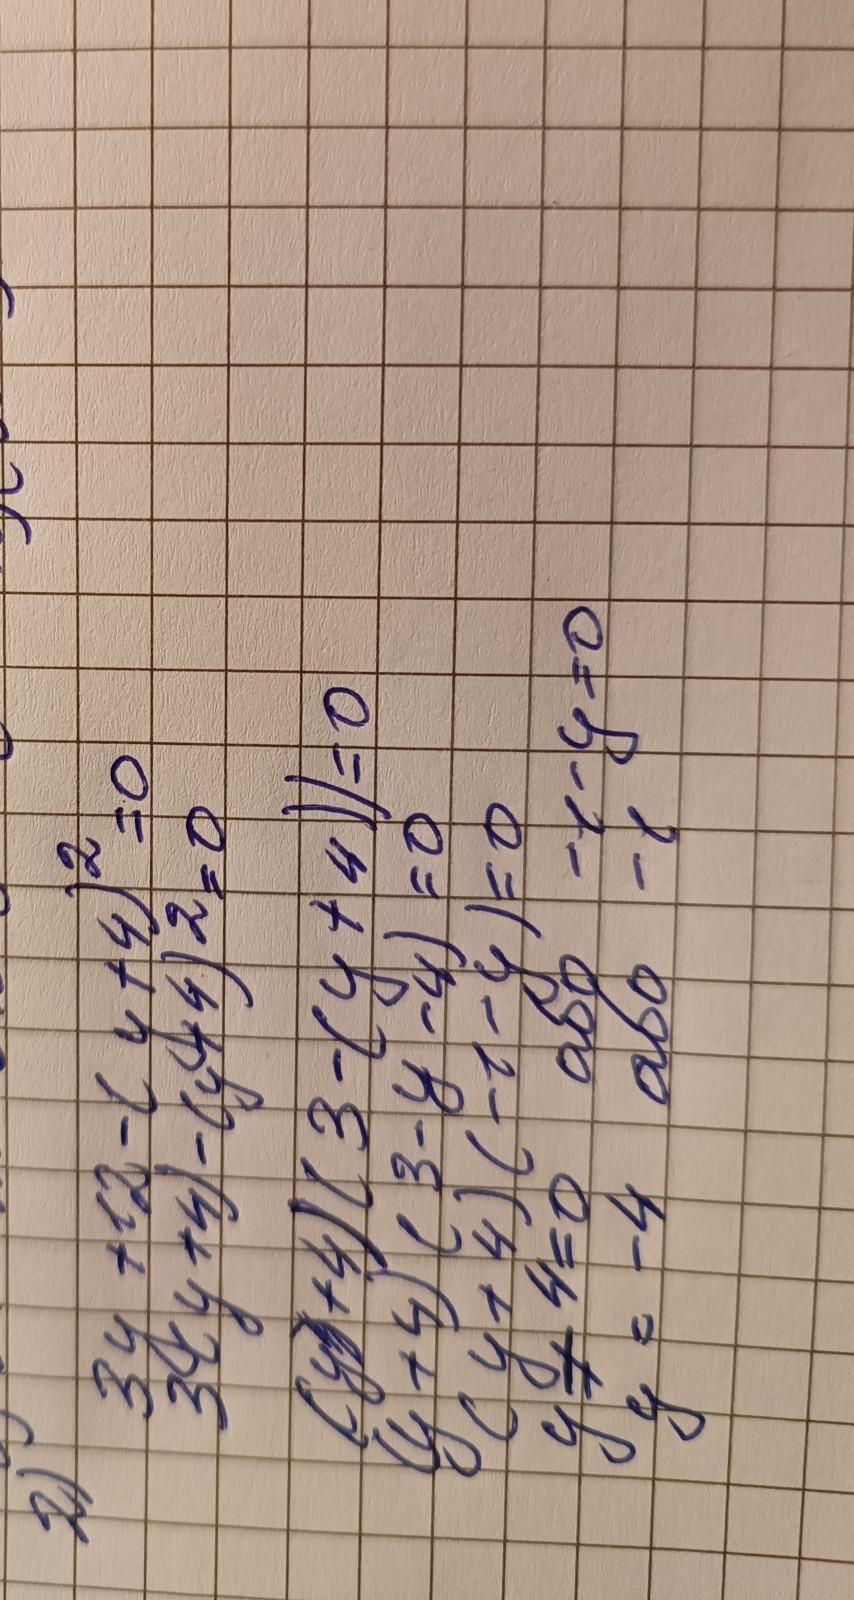 2)
3y + 12 - (y + 4)² = 0
3(y + 4) - (y + 4)² = 0
(y + 4)(3 - (y + 4)) = 0
(y + 4)(3 - y - 4) = 0
(y + 4)(-1 - y) = 0
y + 4 = 0 або -1 - y = 0
y = -4 або -1